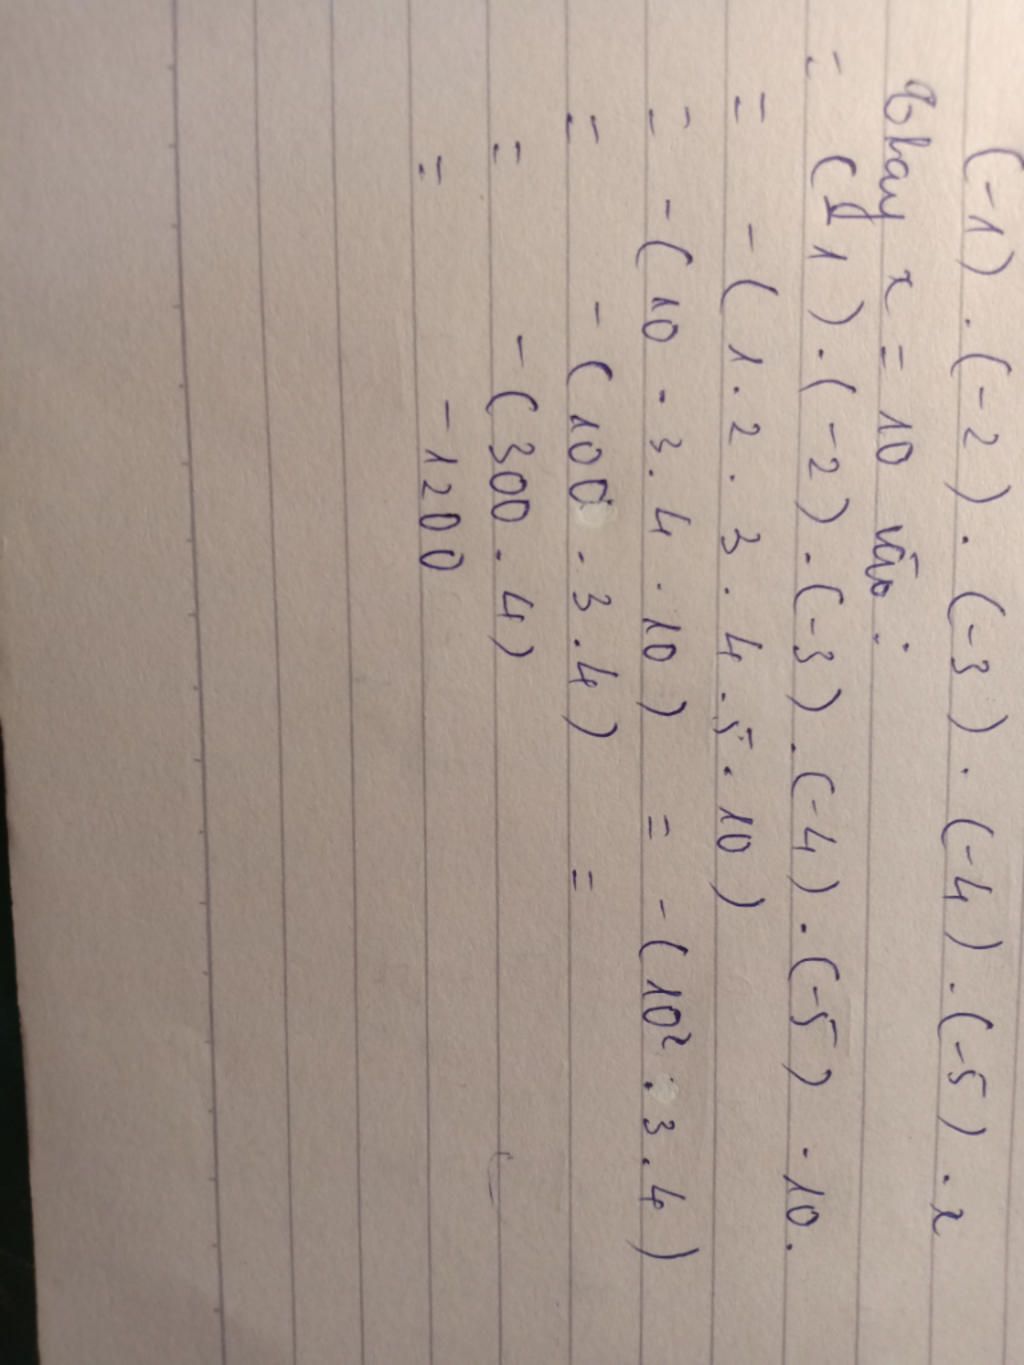 (-1).(-2).(-3).(-4).(-5).x
Thay x = 10 vào:
= (-1).(-2).(-3).(-4).(-5).10.
= -(1.2.3.4.5.10)
= -(10.3.4.10) = -(10².3.4)
= -(100.3.4) =
= -(300.4)
= -1200